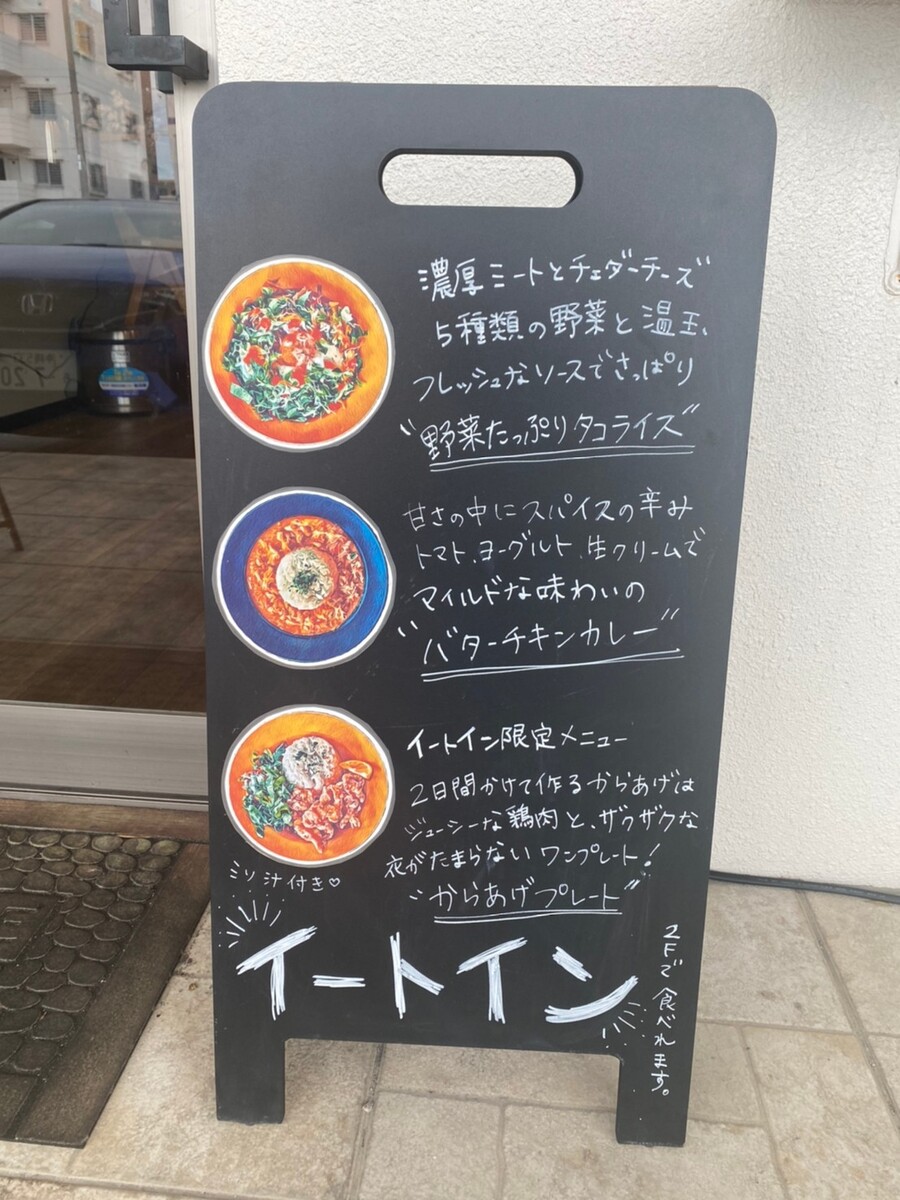 濃厚ミートとチェダーチーズ
5種類の野菜と温玉、
フレッシュなソースでさっぱり
"野菜たっぷりタコライス"
甘さの中にスパイスの辛み
トマト、ヨーグルト、生クリームで
マイルドな味わいの
"バターチキンカレー"
イートイン限定メニュー
2日間かけて作るからあげは
ジューシーな鶏肉と、ザクザクな
衣がたまらないワンプレート!
"からあげプレート"
ミソ汁付き♡
イートイン
2Fで食べれます。